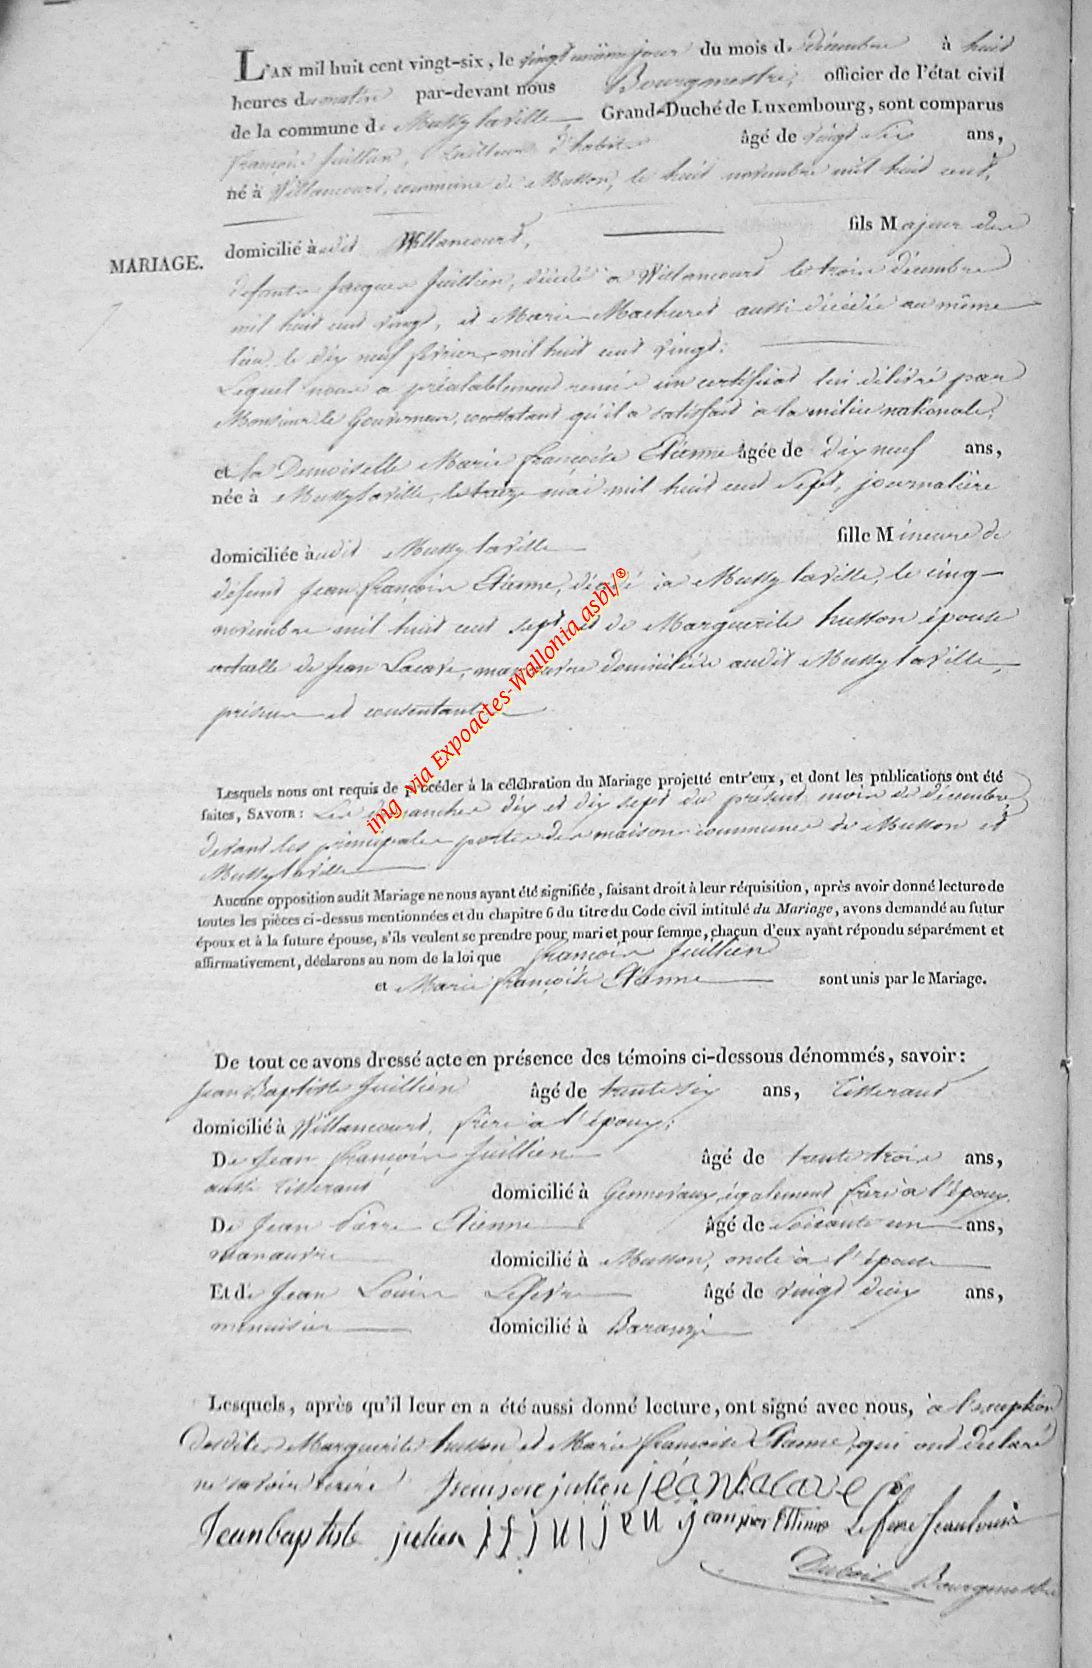 L'AN mil huit cent vingt-six, le vingt unième jour du mois de décembre à huit
heures du matin par-devant nous Bourgmestre, officier de l'état civil
de la commune de Mussy laville Grand-Duché de Luxembourg, sont comparus
françois Juillien, Tailleur d'habits âgé de vingt six ans,
né à Willancourt, commune de Musson, le huit novembre mil huit cent,
domicilié audit Willancourt, fils Majeur des
MARIAGE.
defunts Jacques Juillien, décédé à Willancourt le trois décembre
mil huit cent vingt, et Marie Machuret aussi décédée au même
lieu le dix neuf fevrier mil huit cent vingt;
Lequel nous a préalablement remis un certificat lui délivré par
Monsieur le Gouverneur, constatant qu'il a satisfait à la milice nationale;
et la Demoiselle Marie françoise Etienne âgée de dix neuf ans,
née à Mussy laville, le treize mai mil huit cent Sept, journalière
domiciliée audit Mussy laville fille Mineure de
defunt Jean françois Etienne, décédé à Mussy laville, le cinq
novembre mil huit cent sept et de Marguerite husson épouse
actuelle de Jean Lacave, manœuvre domiciliée audit Mussy laville,
présens et consentants
img via Expoactes-Wallonia asbl/®
Lesquels nous ont requis de procéder à la célébration du Mariage projetté entr'eux, et dont les publications ont été
faites, SAVOIR: Les dimanches dix et dix sept du présent mois de décembre,
devant les principales portes des maisons communes de Musson et
Mussy laville
Aucune opposition audit Mariage ne nous ayant été signifiée, faisant droit à leur réquisition, après avoir donné lecture de
toutes les pièces ci-dessus mentionnées et du chapitre 6 du titre du Code civil intitulé du Mariage, avons demandé au futur
époux et à la future épouse, s'ils veulent se prendre pour mari et pour femme, chacun d'eux ayant répondu séparément et
affirmativement, déclarons au nom de la loi que françois Juillien
et Marie françoise Etienne sont unis par le Mariage.
De tout ce avons dressé acte en présence des témoins ci-dessous dénommés, savoir:
Jean Baptiste Juillien âgé de trente six ans, Tisserant
domicilié à Willancourt, frère à l'époux;
De Jean françois Juillien âgé de trente trois ans,
aussi Tisserant domicilié à Gennevaux, également frère à l'époux
De Jean Pierre Etienne âgé de Soixante un ans,
manœuvre domicilié à Musson, oncle à l'épouse
Et de Jean Louis Lefevre âgé de vingt deux ans,
menuisier domicilié à Baranzy
Lesquels, après qu'il leur en a été aussi donné lecture, ont signé avec nous, à l'exception
desdites Marguerite husson et Marie françoise Etienne, qui ont déclaré
ne savoir écrire françois julien jean lacave
Jean baptiste julien j f jui j en jean pier Etiene Lefevre Jean louis
Bourgmestre